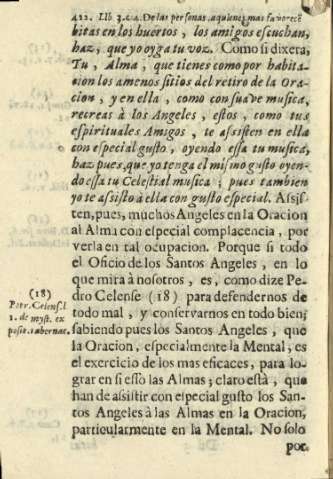 422. Lib. 3. c. 4. De las personas, a quienes mas favorecē
bitas en los huertos, los amigos escuchan,
haz, que yo oyga tu voz. Como si dixera,
Tu, Alma, que tienes como por habita-
cion los amenos sitios del retiro de la Ora-
cion, y en ella, como con suave musica,
recreas à los Angeles, estos, como tus
espirituales Amigos, te assisten en ella
con especial gusto, oyendo essa tu musica,
haz pues, que yo tenga el mismo gusto oyen-
do essa tu Celestial musica; pues tambien
yo te assisto à ella con gusto especial. Assis-
ten, pues, muchos Angeles en la Oracion
al Alma con especial complacencia, por
verla en tal ocupacion. Porque si todo
el Oficio de los Santos Angeles, en lo
que mira à nosotros, es, como dize Pe-
dro Celense (18) para defendernos de
todo mal, y conservarnos en todo bien;
sabiendo pues los Santos Angeles, que
la Oracion, especialmente la Mental, es
el exercicio de los mas eficaces, para lo-
grar en si esso las Almas; claro està, que
han de assistir con especial gusto los San-
tos Angeles à las Almas en la Oracion,
particularmente en la Mental. No solo
por
(18)
Petr. Celens. l.
1. de myst. ex
posit. tabernac.